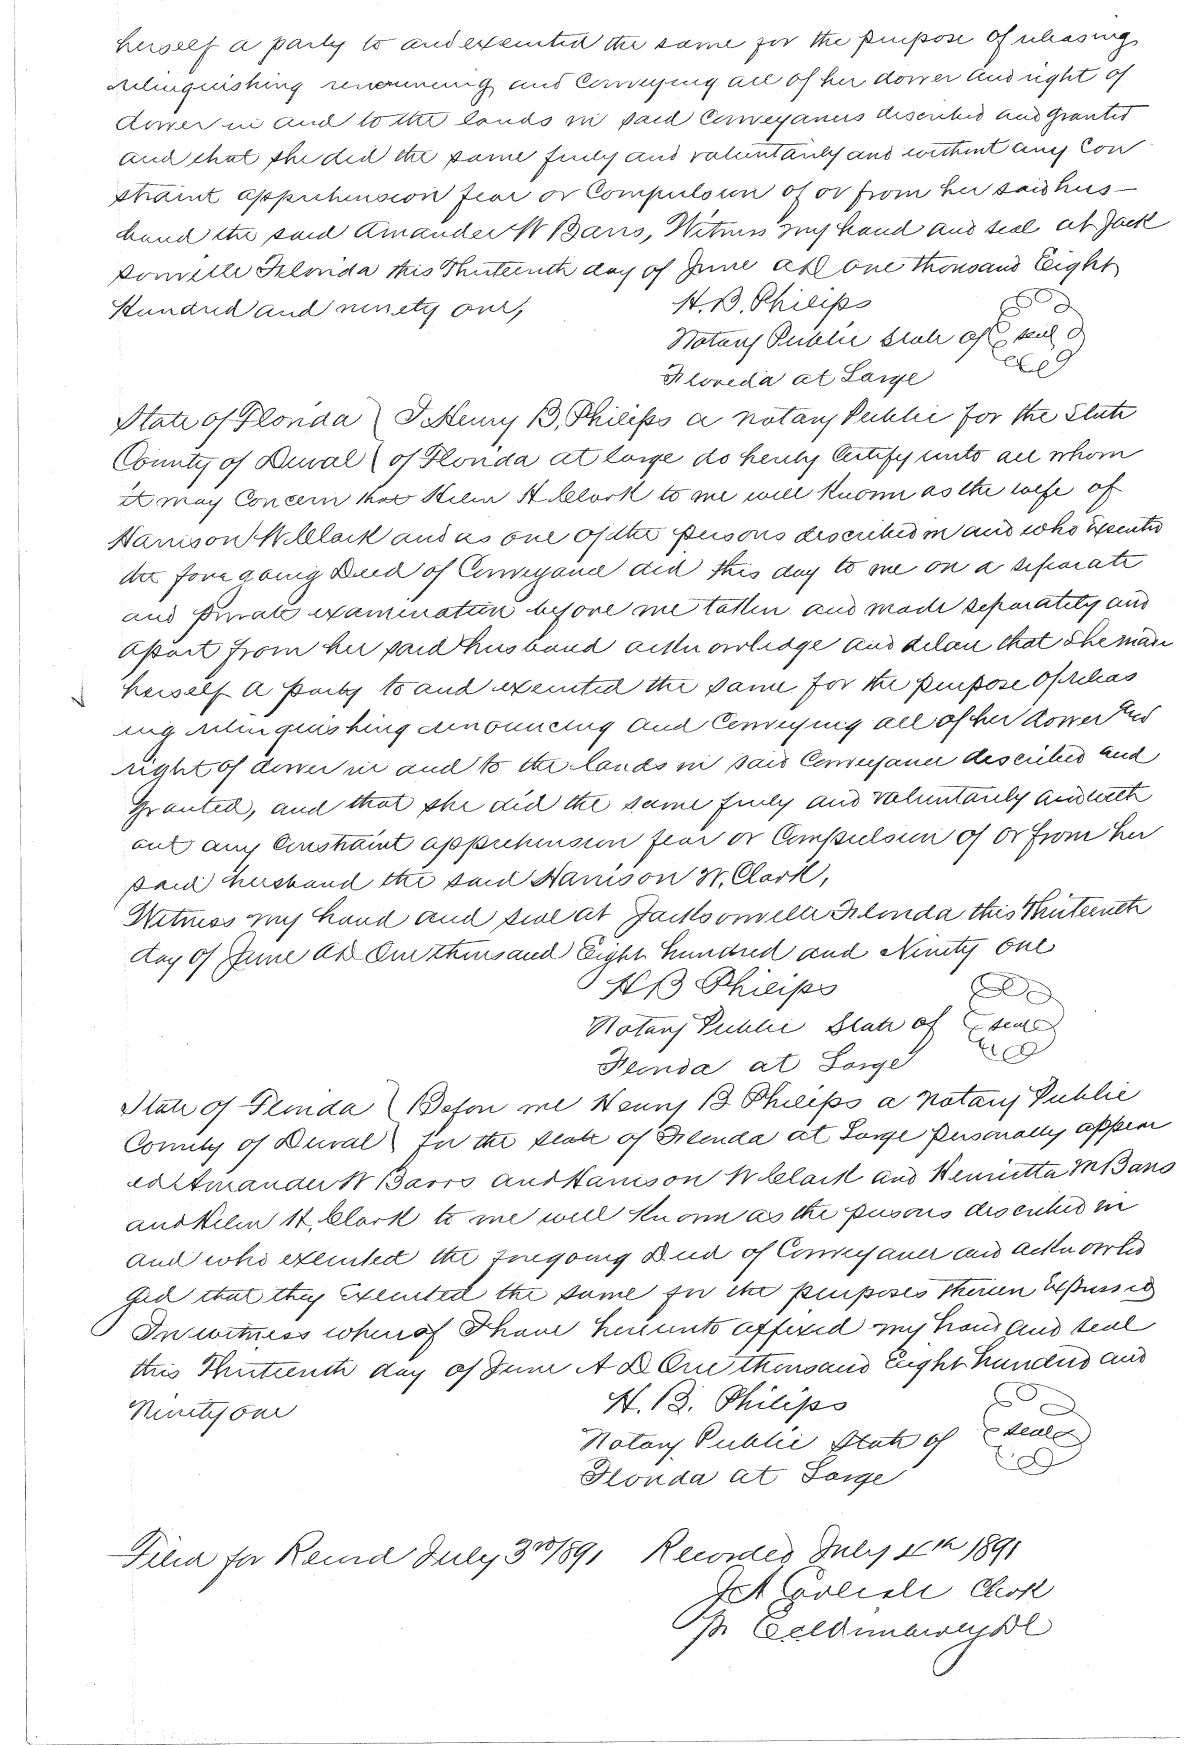 herself a party to and executed the same for the purpose of releasing
relinquishing renouncing and Conveying all of her dower and right of
dower in and to the lands in said Conveyances described and granted
and that she did the same freely and voluntarily and without any Con
straint apprehension fear or Compulsion of or from her said hus-
band the said Amander W Barrs, Witness my hand and seal at Jack
sonville Florida this Thirteenth day of June AD one thousand Eight
Hundred and ninety one,
H. B. Philips
Notary Public State of seal
Florida at Large
State of Florida } I Henry B, Philips a Notary Public for the State
County of Duval } of Florida at large do hereby Certify unto all whom
it may Concern that Helen H Clark to me well Known as the wife of
Harrison W Clark and as one of the persons described in and who Executed
the foregoing Deed of Conveyance did this day to me on a separate
and private examination before me taken and made separately and
apart from her said husband acknowledge and delare that she made
herself a party to and executed the same for the purpose of releas
ing relinquishing renouncing and Conveying all of her dower and
right of dower in and to the lands in said Conveyance described and
granted, and that she did the same freely and voluntarily and with
out any Constraint apprehension fear or Compulsion of or from her
said husband the said Harrison W. Clark,
Witness my hand and seal at Jacksonville Florida this Thirteenth
day of June AD One thousand Eight hundred and Ninety one
H B Philips
Notary Public State of seal
Florida at Large
State of Florida } Before me Henry B Philips a Notary Public
County of Duval } for the State of Florida at Large personally appear
ed Amander W Barrs and Harrison W Clark and Henrietta M Barrs
and Helen H. Clark to me well Known as the persons described in
and who executed the foregoing Deed of Conveyance and acknowled
ged that they Executed the same for the purposes therein Expressed
In witness whereof I have hereunto affixed my hand and seal
this Thirteenth day of June A D One thousand Eight hundred and
Ninety one
H. B. Philips
Notary Public State of seal
Florida at Large
Filed for Record July 3rd 1891 Recorded July 1891
Clerk